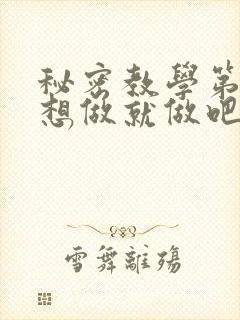 秘密教學第
想做就做吧
雪舞離殤